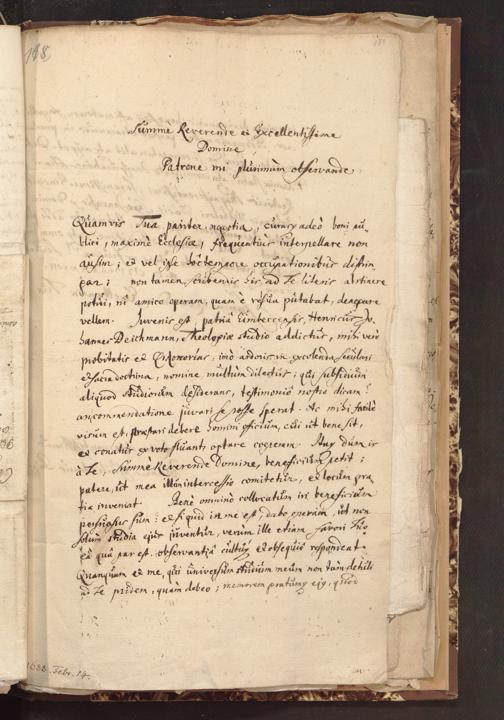 188
Summè Reverende et Excellentissime
Domine
Patrone mi plurimùm observande.
Quamvis Tua pariter negotia, curasq adeò boni pu-
blici, maximè Ecclesiæ, frequentiùs interpellare non
ausim; et vel ipse hoc tempore occupationibus distin-
gar; non tamen, scribentis his ad Te literis abstinere
potui, ni amico operam, quam è re sua putabat, denegare
vellem. Juvenis est, patriâ Limbeccensis, Henricus Jo-
hannes Deichmann, Theologiæ studio addictus, mihi verò
probitatis et ardoris in excolenda seculari
et sacra doctrina, nomine multum dilectus; qui subsidium
aliquod studiorum desiderans, testimonio nostro dicam?
an commendatione juvari se posse sperat. Ac mihi facilè
visum est, præstari debere homini officium, cui ut bene sit,
et conatus ex voto fluant optare cogerem. Quare dum is
à Te, Summè Reverende Domine, beneficium petit;
patere, ut mea illum intercessio comitetur, et locum gra-
tia inveniat. Benè omninò collocatum iri beneficium
persuasus sum: et si quid in me est, dabo operam, ut non
solum studia ejus juventur, verum ille etiam favori Tuo
eâ quâ par est, observantiâ cultuq et obsequio respondeat.
Quanquam et me, qui universum studium meum non tam detuli
ad Te pridem, quàm debeo; memorem gratumq ejus, quod
1688 Febr. 14.